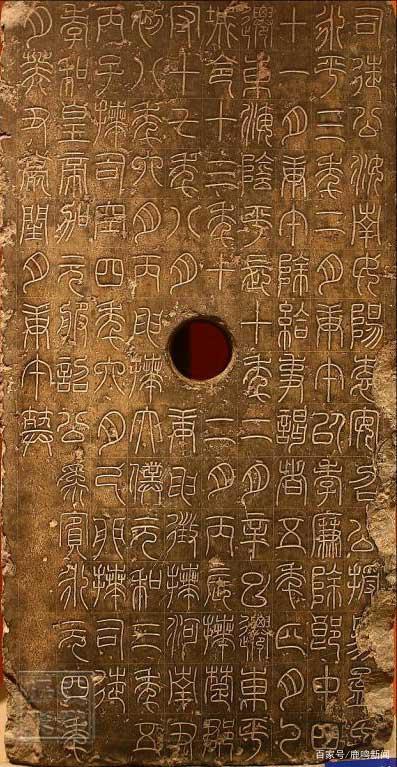 司徒公汝南女陽袁安召公授易孟氏
永平三年二月庚午以孝廉除郎中四
十一月庚午除給事謁者五年正月乙
遷東海陰平長十年二月辛巳遷東平
城令十三年十二月丙辰拜楚郡
守十七年八月庚申徵拜河南尹
初八年六月丙申拜太僕元和三年五
丙子拜司空四年六月己卯拜司徒
孝和皇帝加元服詔公為賓永元四年
月癸丑薨閏月庚午葬
百家号/鹿鸣新闻